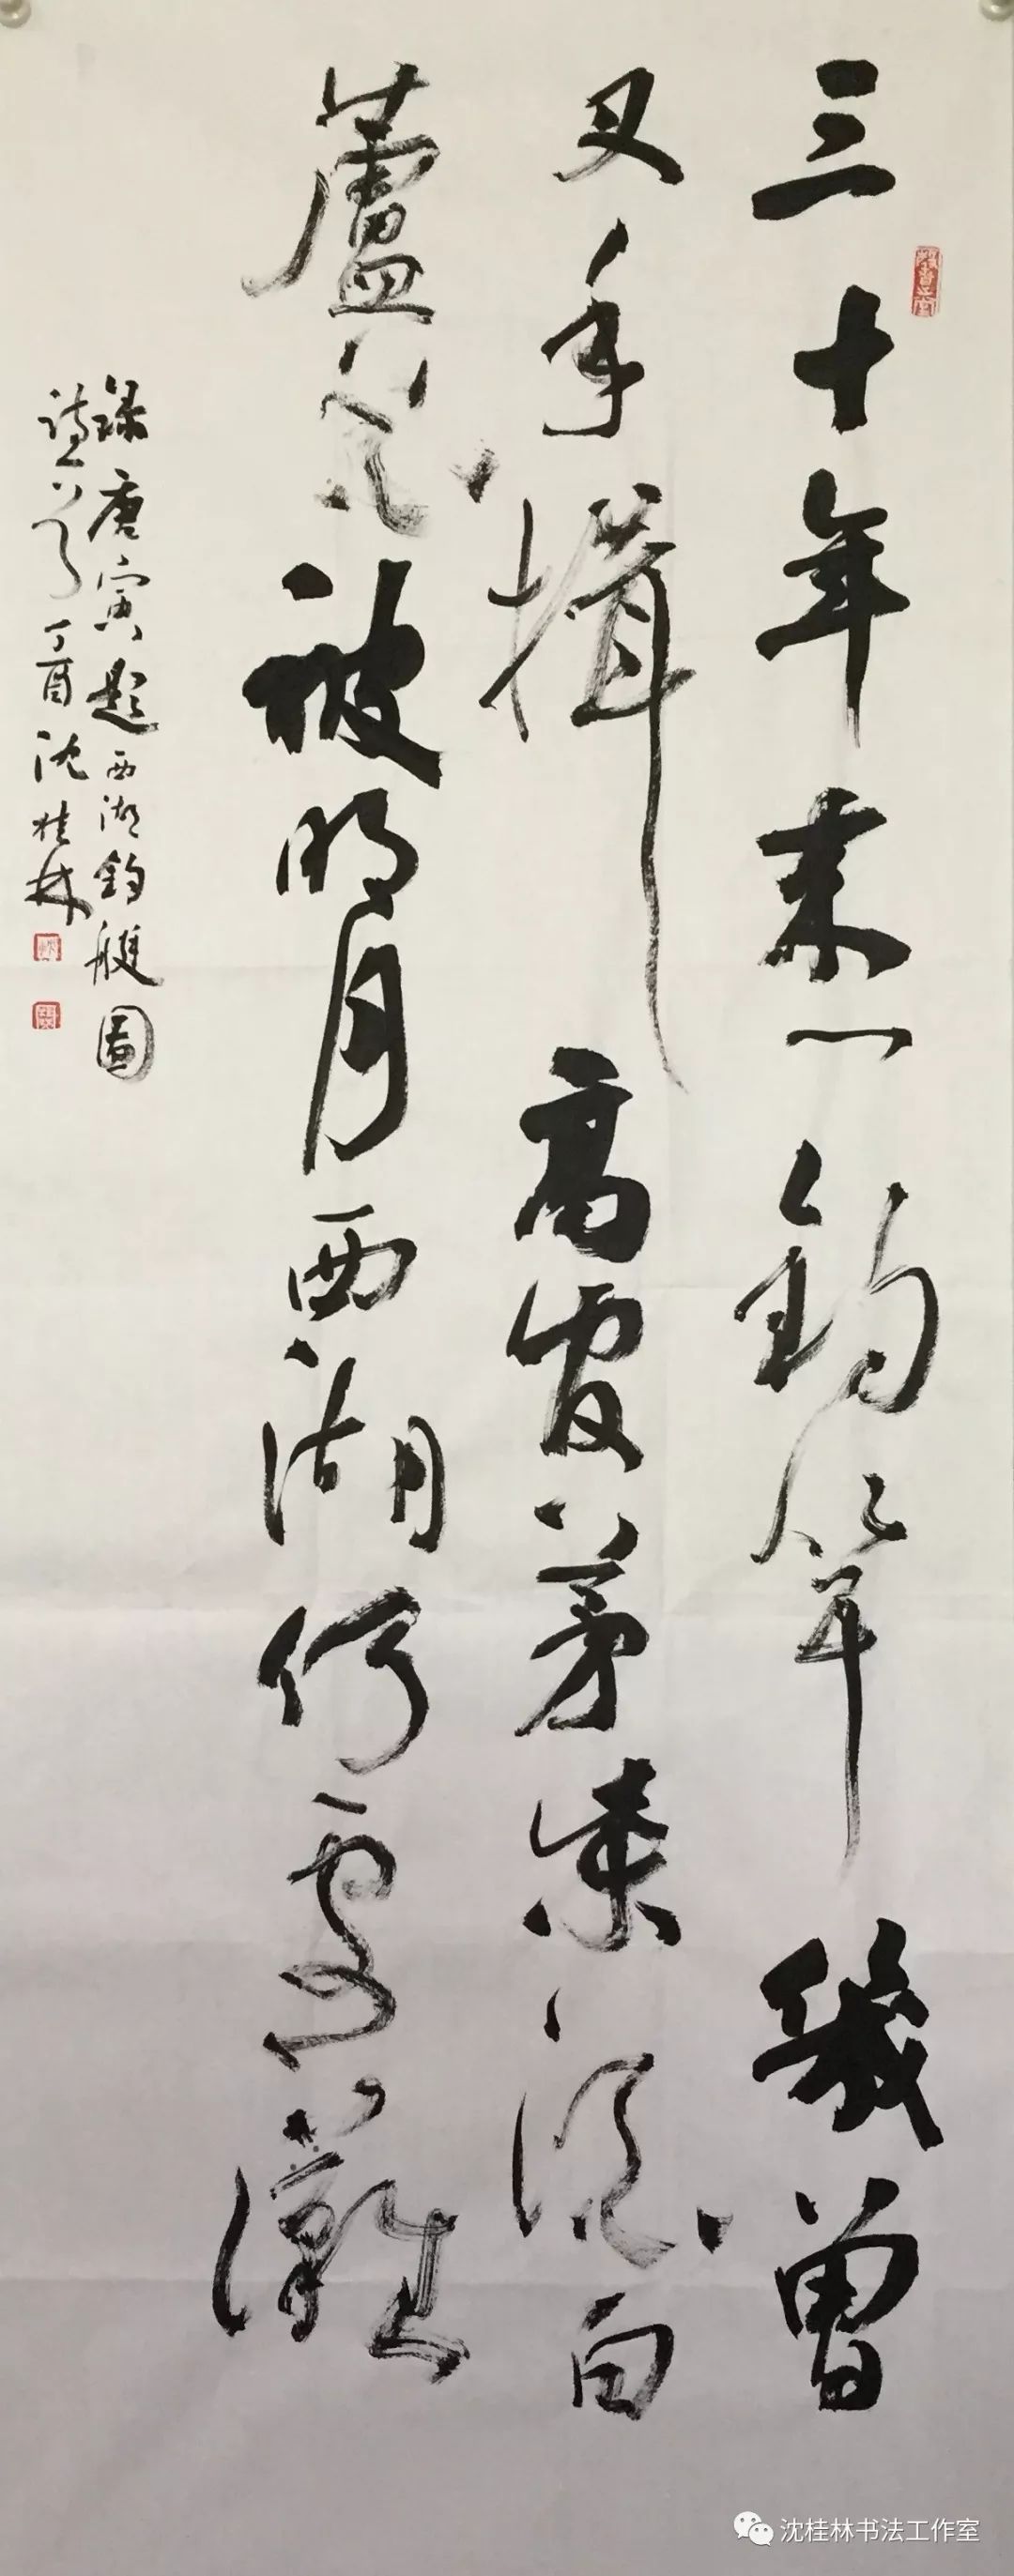 三十年来一钓竿幾曾
叉手揖高官茅柴滚白
蘆花被明月西湖何處灘
録唐寅題西湖釣艇圖
詩一首丁酉沈桂林
沈桂林书法工作室